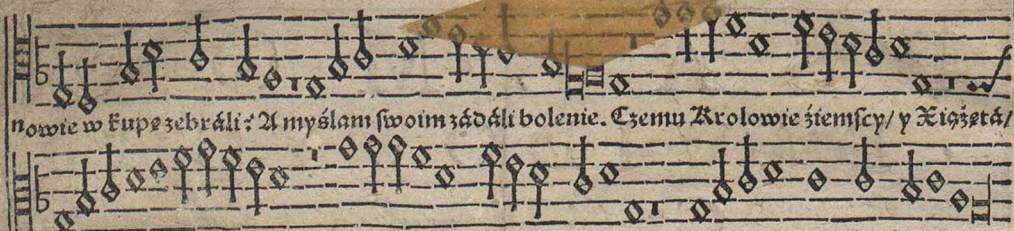 nowie w kupę zebráli: A myślam swoim zádáli bolenie. Czemu Krolowie źiemscy/ y Xiążętá/